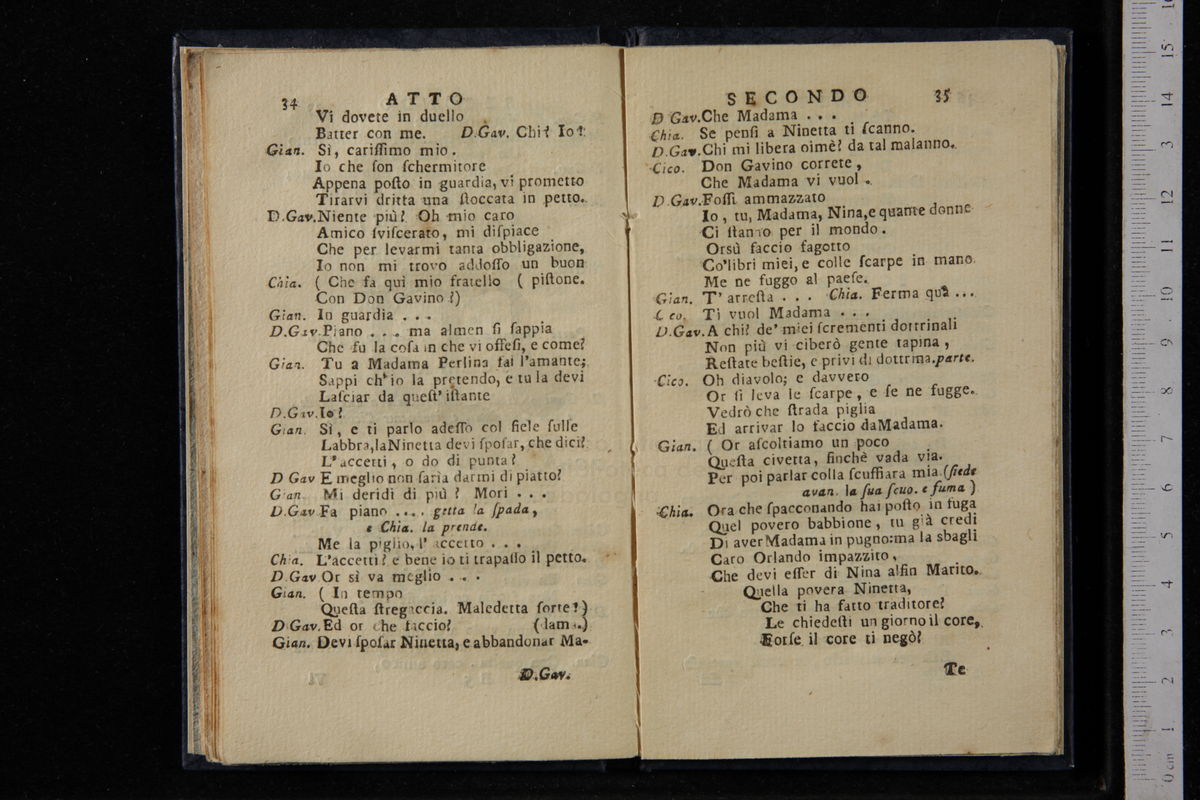 34 ATTO
Vi dovete in duello
Batter con me. D.Gav. Chi? Io?
Gian. Sì, cariſſimo mio.
Io che ſon ſchermitore
Appena poſto in guardia, vi prometto
Tirarvi dritta una ſtoccata in petto.
D.Gav.Niente più? Oh mio caro
Amico ſviſcerato, mi diſpiace
Che per levarmi tanta obbligazione,
Io non mi trovo addoſſo un buon
Chia. ( Che fa quì mio fratello ( piſtone.
Con Don Gavino?)
Gian. In guardia . . .
D.Gav.Piano . . . ma almen ſi ſappia
Che fu la coſa in che vi offeſi, e come?
Gian. Tu a Madama Perlina fai l'amante;
Sappi ch'io la pretendo, e tu la devi
Laſciar da queſt' iſtante
D.Gav.Io?
Gian. Sì, e ti parlo adeſſo col fiele ſulle
Labbra,laNinetta devi ſpoſar, che dici?
L'accetti, o do di punta?
D Gav E meglio non faria darmi di piatto?
Gian. Mi deridi di più? Mori . . .
D.Gav Fa piano .... getta la ſpada,
e Chia. la prende.
Me la piglio, l'accetto . . .
Chia. L'accetti? e bene io ti trapaſſo il petto.
D.Gav Or sì va meglio . . .
Gian. ( In tempo
Queſta ſtregaccia. Maledetta ſorte!)
D.Gav.Ed or che faccio? (dama.)
Gian. Devi ſpoſar Ninetta, e abbandonar Ma-
D.Gav.
SECONDO 35
D Gav.Che Madama . . .
Chia. Se penſi a Ninetta ti ſcanno.
D.Gav.Chi mi libera oimè! da tal malanno.
Cico. Don Gavino correte,
Che Madama vi vuol.
D.Gav.Foſſi ammazzato
Io, tu, Madama, Nina,e quante donne
Ci ſtanno per il mondo.
Orsù faccio fagotto
Co'libri miei, e colle ſcarpe in mano
Me ne fuggo al paeſe.
Gian. T' arreſta . . . Chia. Ferma quà ...
Cico. Ti vuol Madama . . .
D.Gav.A chi? de' miei ſcrementi dottrinali
Non più vi ciberò gente tapina,
Reſtate beſtie, e privi di dottrina.parte.
Cico. Oh diavolo; e davvero
Or ſi leva le ſcarpe, e ſe ne fugge.
Vedrò che ſtrada piglia
Ed arrivar lo faccio daMadama.
Gian. ( Or aſcoltiamo un poco
Queſta civetta, finchè vada via.
Per poi parlar colla ſcuffiara mia.(ſiede
avan. la ſua ſcuo. e fuma )
Chia. Ora che ſpacconando hai poſto in fuga
Quel povero babbione, tu già credi
Di aver Madama in pugno:ma la sbagli
Caro Orlando impazzito,
Che devi eſſer di Nina alfin Marito.
Quella povera Ninetta,
Che ti ha fatto traditore?
Le chiedeſti un giorno il core,
Forſe il core ti negò?
Te